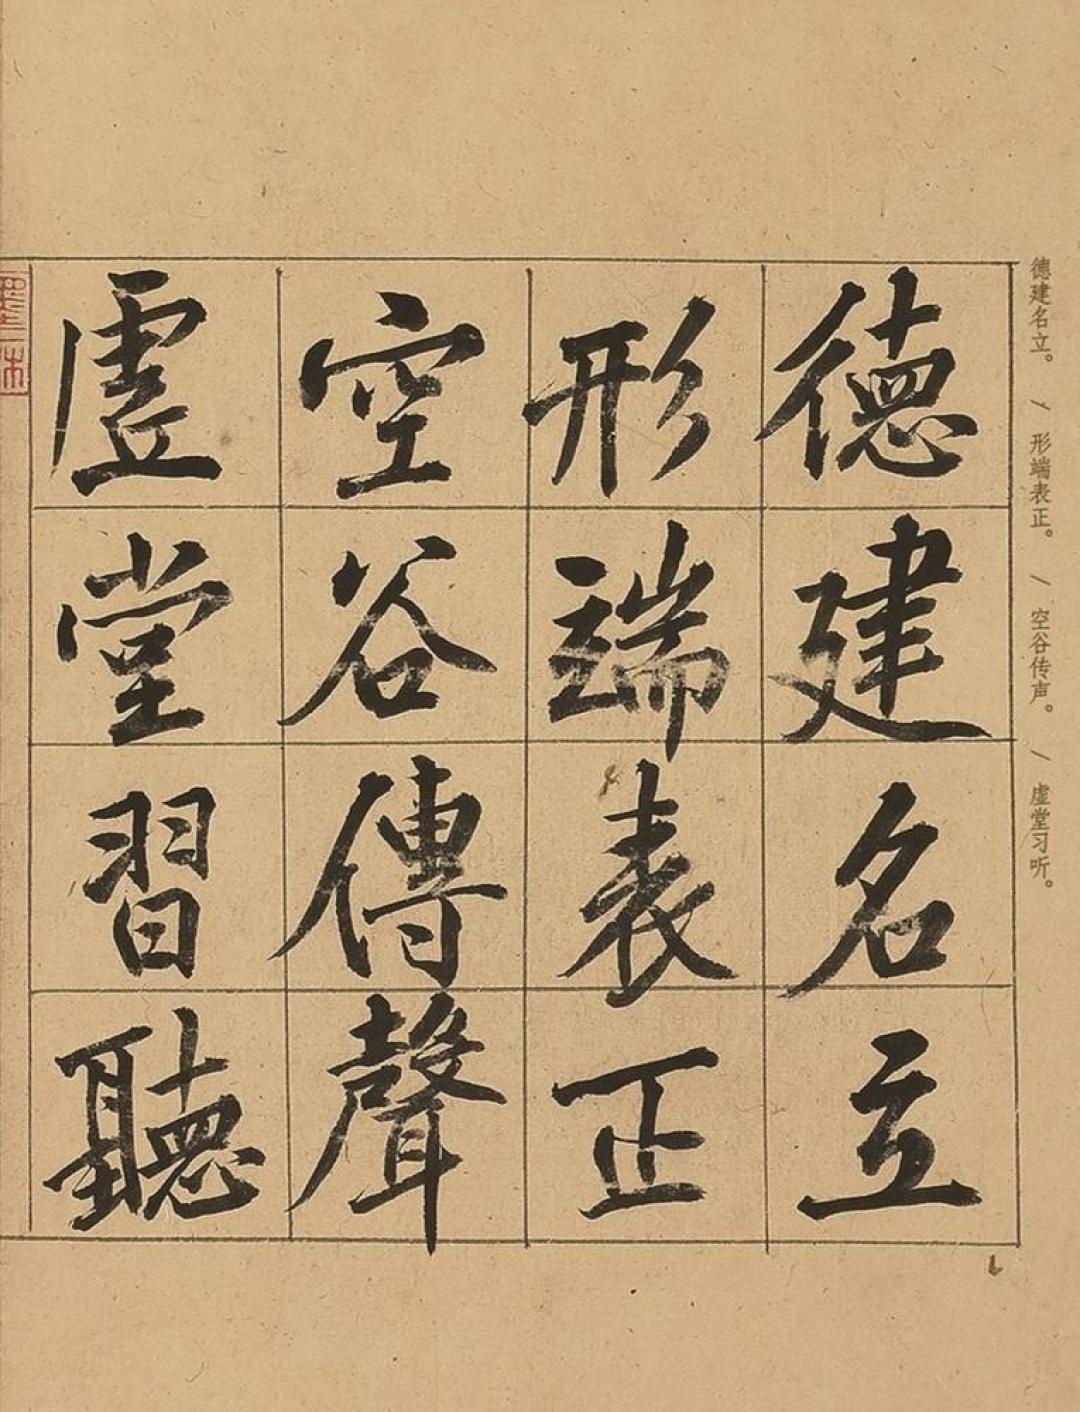 德建名立。 / 形端表正。 / 空谷传声。 / 虚堂习听。
德建名立
形端表正
空谷傳聲
虛堂習聽